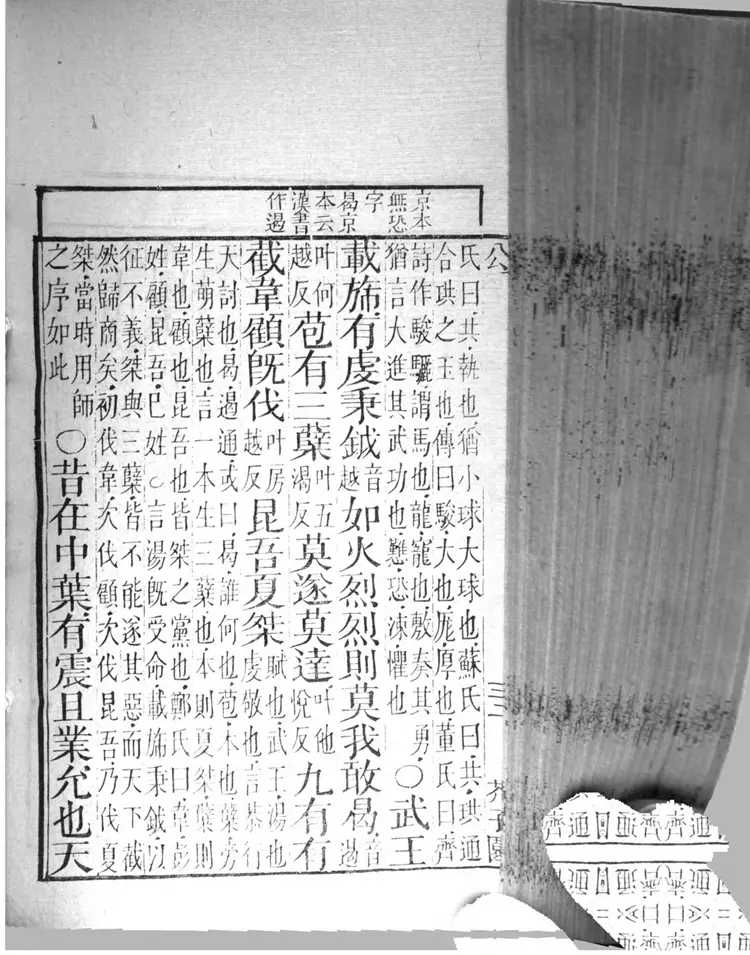 京本
無恐
字
曷京
本云
漢書
作遏
芥子園
氏曰共執也猶小球大球也蘇氏曰共珙通
合珙之玉也傳曰駿大也厖厚也董氏曰齊
詩作駿駹謂馬也龍寵也敷奏其勇
猶言大進其武功也戁恐竦懼也○武王
載旆有虔秉鉞音越如火烈烈則莫我敢曷音遏
叶何越反苞有三蘖叶五渴反莫遂莫達叶他悅反九有有
截韋顧旣伐叶房越反昆吾夏桀賦也武王湯也
虔敬也言恭行
天討也曷遏通或曰曷誰何也苞本也蘖旁
生萌蘖也言一本生三蘖也本則夏桀蘖則
韋也顧也昆吾也皆桀之黨也鄭氏曰韋彭
姓顧昆吾巳姓○言湯旣受命載旆秉鉞以
征不義桀與三蘖皆不能遂其惡而天下截
然歸商矣初伐韋次伐顧次伐昆吾乃伐夏
桀當時用師
之序如此○昔在中葉有震且業允也天